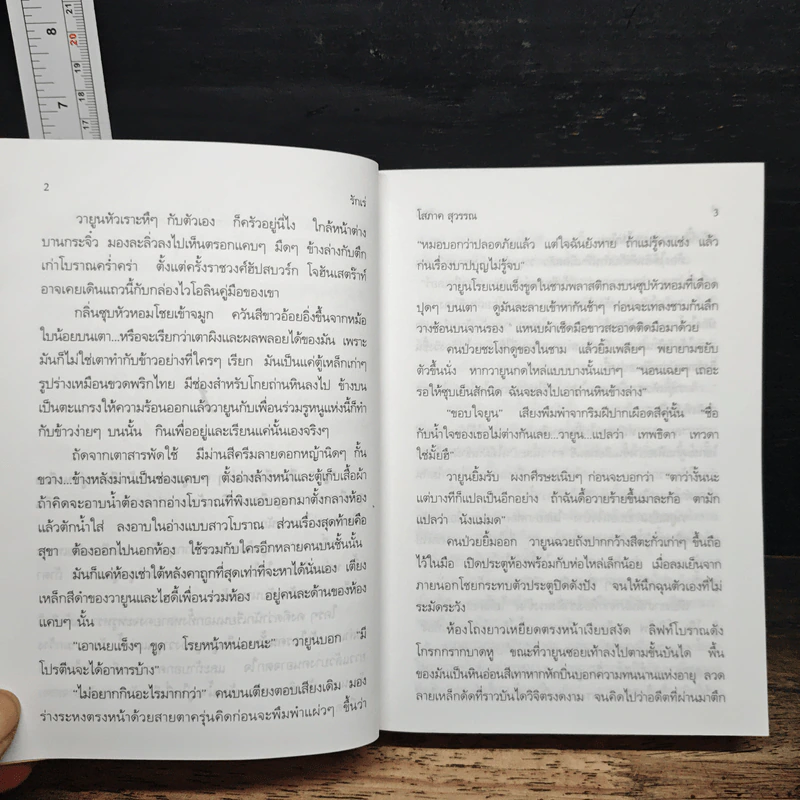 8
21
20
19
7
18
17
2
รักเร่
วายูนหัวเราะหึๆ กับตัวเอง ก็ครัวอยู่นี่ไง ใกล้หน้าต่าง
บานกระจิ๋ว มองละลิ่วลงไปเห็นตรอกแคบๆ มืดๆ ข้างล่างกับตึก
เก่าโบราณคร่ำคร่า ตั้งแต่ครั้งราชวงศ์ฮัปสบวร์ก โจฮันเสตร๊าท์
อาจเคยเดินแถวนี้กับกล่องไวโอลินคู่มือของเขา
กลิ่นซุปหัวหอมโชยเข้าจมูก ควันสีขาวอ้อยอิ่งขึ้นจากหม้อ
ใบน้อยบนเตา...หรือจะเรียกว่าเตาผิงและผลพลอยได้ของมัน เพราะ
มันก็ไม่ใช่เตาทำกับข้าวอย่างที่ใครๆ เรียก มันเป็นแค่ตู้เหล็กเก่าๆ
รูปร่างเหมือนขวดพริกไทย มีช่องสำหรับโกยถ่านหินลงไป ข้างบน
เป็นตะแกรงให้ความร้อนออกแล้ววายูนกับเพื่อนร่วมรูหนูแห่งนี้ก็ทำ
กับข้าวง่ายๆ บนนั้น กินเพื่ออยู่และเรียนแค่นั้นเองจริงๆ
ถัดจากเตาสารพัดใช้ มีม่านสีครีมลายดอกหญ้านิดๆ กั้น
ขวาง...ข้างหลังม่านเป็นช่องแคบๆ ตั้งอ่างล้างหน้าและตู้เก็บเสื้อผ้า
ถ้าคิดจะอาบน้ำต้องลากอ่างโบราณที่พิงแอบออกมาตั้งกลางห้อง
แล้วตักน้ำใส่ ลงอาบในอ่างแบบสาวโบราณ ส่วนเรื่องสุดท้ายคือ
สุขา ต้องออกไปนอกห้อง ใช้ร่วมกับใครอีกหลายคนบนชั้นนั้น
มันก็แค่ห้องเช่าใต้หลังคาถูกที่สุดเท่าที่จะหาได้นั่นเอง เตียง
เหล็กสีดำของวายูนและไฮดี้เพื่อนร่วมห้อง อยู่คนละด้านของห้อง
แคบๆ นั้น
"เอาเนยแข็งๆ ขูด โรยหน้าหน่อยนะ" วายูนบอก "มี
โปรตีนจะได้อาหารบ้าง"
"ไม่อยากกินอะไรมากกว่า" คนบนเตียงตอบเสียงเดิม มอง
ร่างระหงตรงหน้าด้วยสายตาครุ่นคิดก่อนจะพึมพำแผ่วๆ ขึ้นว่า
โสภาค สุวรรณ
3
"หมอบอกว่าปลอดภัยแล้ว แต่ใจฉันยังหาย ถ้าแม่รู้คงแช่ง แล้ว
ก่นเรื่องบาปบุญไม่รู้จบ"
วายูนโรยเนยแข็งขูดในชามพลาสติกลงบนซุปหัวหอมที่เดือด
ปุดๆ บนเตา ดูมันละลายเข้าหากันช้าๆ ก่อนจะเทลงชามก้นลึก
วางช้อนบนจานรอง แหนบผ้าเช็ดมือขาวสะอาดติดมือมาด้วย
คนป่วยชะโงกดูของในชาม แล้วยิ้มเพลียๆ พยายามขยับ
ตัวขึ้นนั่ง หากวายูนกดไหล่แบบบางนั้นเบาๆ "นอนเฉยๆ เถอะ
รอให้ซุปเย็นสักนิด ฉันจะลงไปเอาถ่านหินข้างล่าง"
"ขอบใจยูน" เสียงพึมพำจากริมฝีปากเผือดสีคู่นั้น "ชื่อ
กับน้ำใจของเธอไม่ต่างกันเลย...วายูน...แปลว่า เทพธิดา เทวดา
ใช่มั้ยฮึ"
วายูนยิ้มรับ ผงกศีรษะเนิบๆ ก่อนจะบอกว่า "ตาว่างั้นนะ
แต่บางทีก็แปลเป็นอีกอย่าง ถ้าฉันดื้อวายร้ายขึ้นมาละก้อ ตามัก
แปลว่า นังแม่มด"
คนป่วยยิ้มออก วายูนฉวยถังปากกว้างสีตะกั่วเก่าๆ ขึ้นถือ
ไว้ในมือ เปิดประตูห้องพร้อมกับห่อไหล่เล็กน้อย เมื่อลมเย็นจาก
ภายนอกโชยกระทบตัวประตูปิดดังปัง จนให้นึกฉุนตัวเองที่ไม่
ระมัดระวัง
ห้องโถงยาวเหยียดตรงหน้าเงียบสงัด ลิฟท์โบราณดัง
โกรกกรากบาดหู ขณะที่วายูนซอยเท้าลงไปตามชั้นบันได พื้น
ของมันเป็นหินอ่อนสีเทาหากหักบิ่นบอกความทนนานแห่งอายุ ลวด
ลายเหล็กดัดที่ราวบันไดวิจิตรงดงาม จนคิดไปว่าอดีตที่ผ่านมาตึก